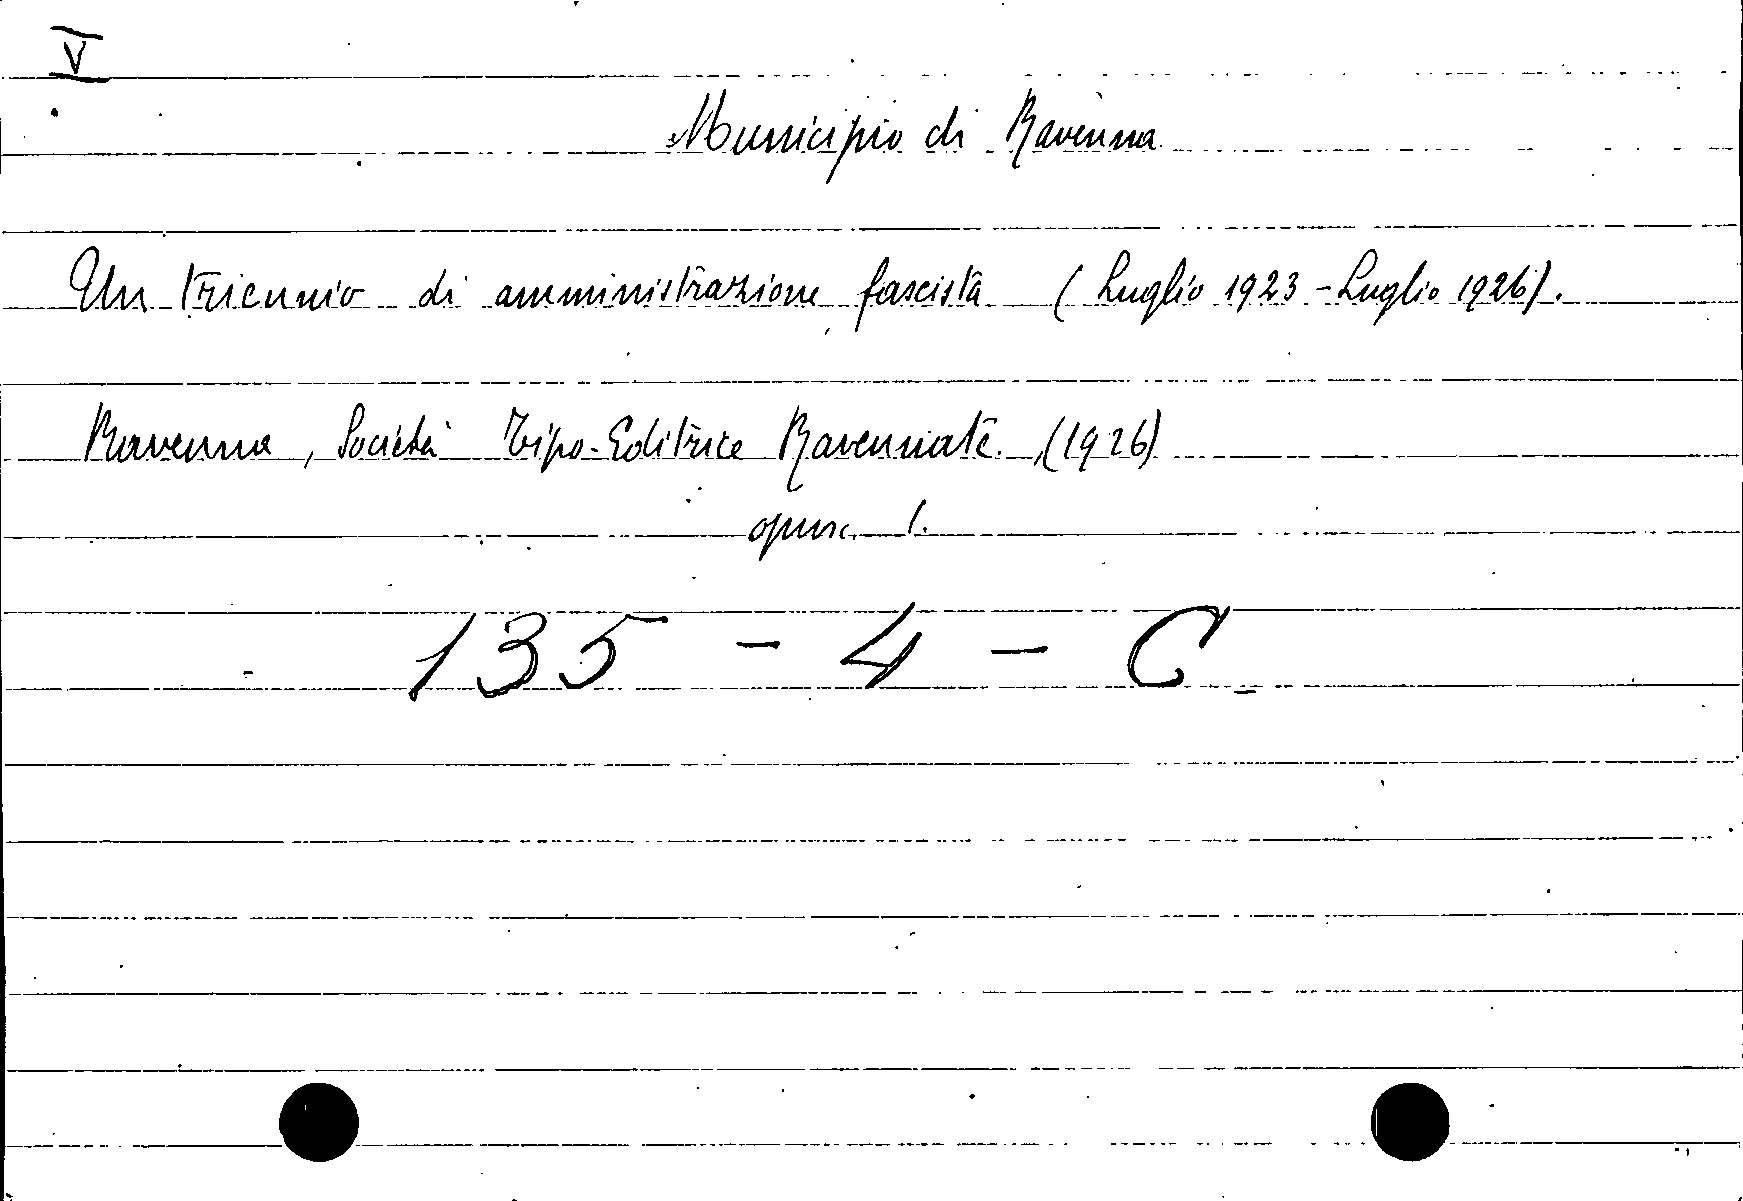 V
Municipio di Ravenna
Un triennio di amministrazione fascista (Luglio 1923-Luglio 1926).
Ravenna, Società Tipo-Editrice Ravennate, (1926)
opusc. 1.
135 - 4 - C